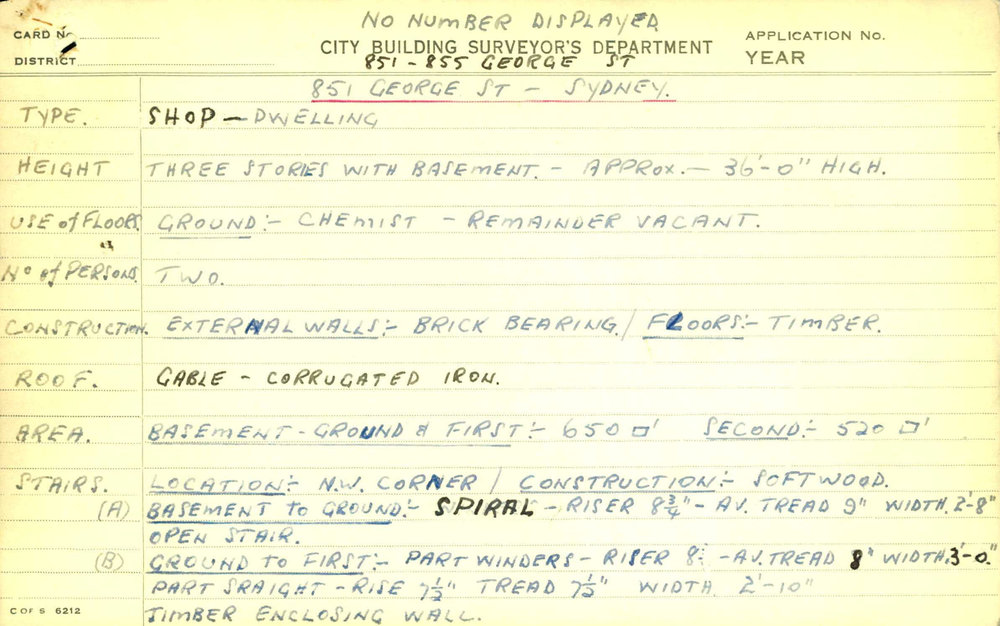 NO NUMBER DISPLAYED
CARD No
CITY BUILDING SURVEYOR'S DEPARTMENT
APPLICATION No.
DISTRICT
851 - 855 GEORGE ST
YEAR
851 GEORGE ST - SYDNEY.
TYPE. SHOP - DWELLING
HEIGHT THREE STORIES WITH BASEMENT. - APPROX. - 36'-0" HIGH.
USE of FLOORS. GROUND:- CHEMIST - REMAINDER VACANT.
No of PERSONS. TWO.
CONSTRUCTION. EXTERNAL WALLS:- BRICK BEARING. / FLOORS:- TIMBER.
ROOF. GABLE - CORRUGATED IRON.
AREA. BASEMENT - GROUND & FIRST:- 650 □' SECOND:- 520 □'
STAIRS. LOCATION:- N.W. CORNER / CONSTRUCTION:- SOFTWOOD.
(A) BASEMENT TO GROUND:- SPIRAL - RISER 8¾" - AV. TREAD 9" WIDTH. 2'-8"
OPEN STAIR.
(B) GROUND TO FIRST:- PART WINDERS - RISER 8 - AV. TREAD 8" WIDTH. 3'-0"
PART SRAIGHT - RISE 7½" TREAD 7½" WIDTH 2'-10"
C OF S 6212
TIMBER ENCLOSING WALL.